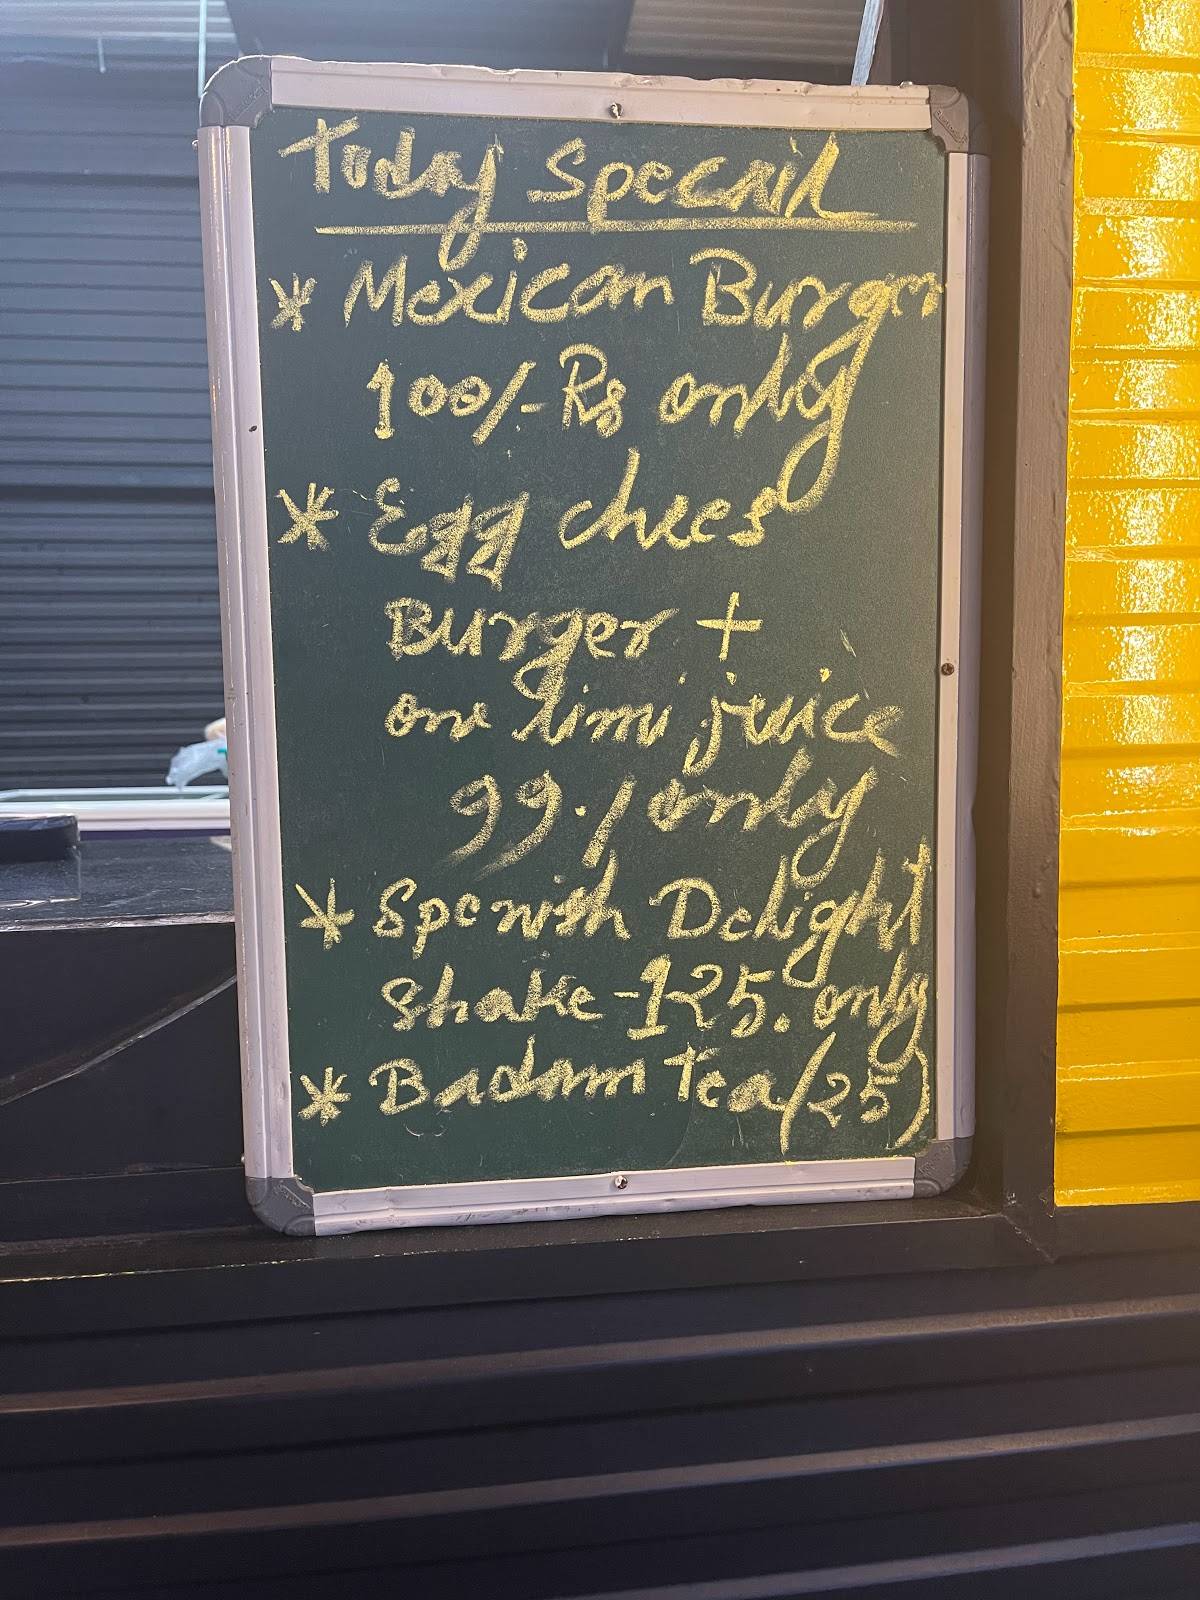 Today Specail
* Mexican Burger
100/- Rs only
* Egg chees
Burger +
one limi juice
99./ only
* Spenish Delight
Shake - 125. only
* Badam Tea (25)